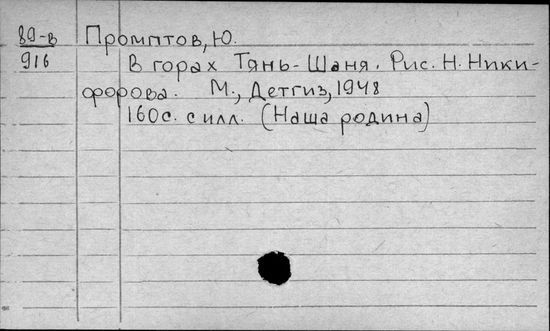 89-в Промптов, Ю.
916 В горах Тянь-Шаня. Рис. Н. Ники-
форова. М., Детгиз, 1948
160с. с илл. (Наша родина)